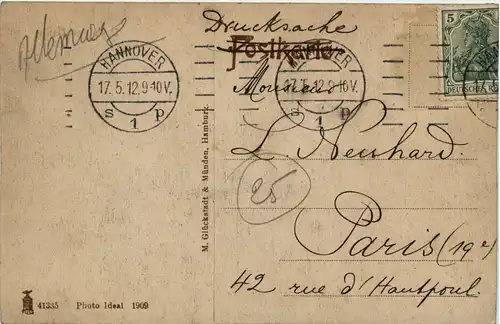 Allemagne
Drucksache
Postkarte
5
DEUTSCHES REICH
HANNOVER
17.5.12.9-10V.
S 1 p
HANNOVER
17.5.12.9-10V.
S 1 p
Monsieur
L. Neuhard.
25
Paris (19e)
42 rue d'Hautpoul.
M. Glückstadt & Münden, Hamburg.
41335 Photo Ideal 1909